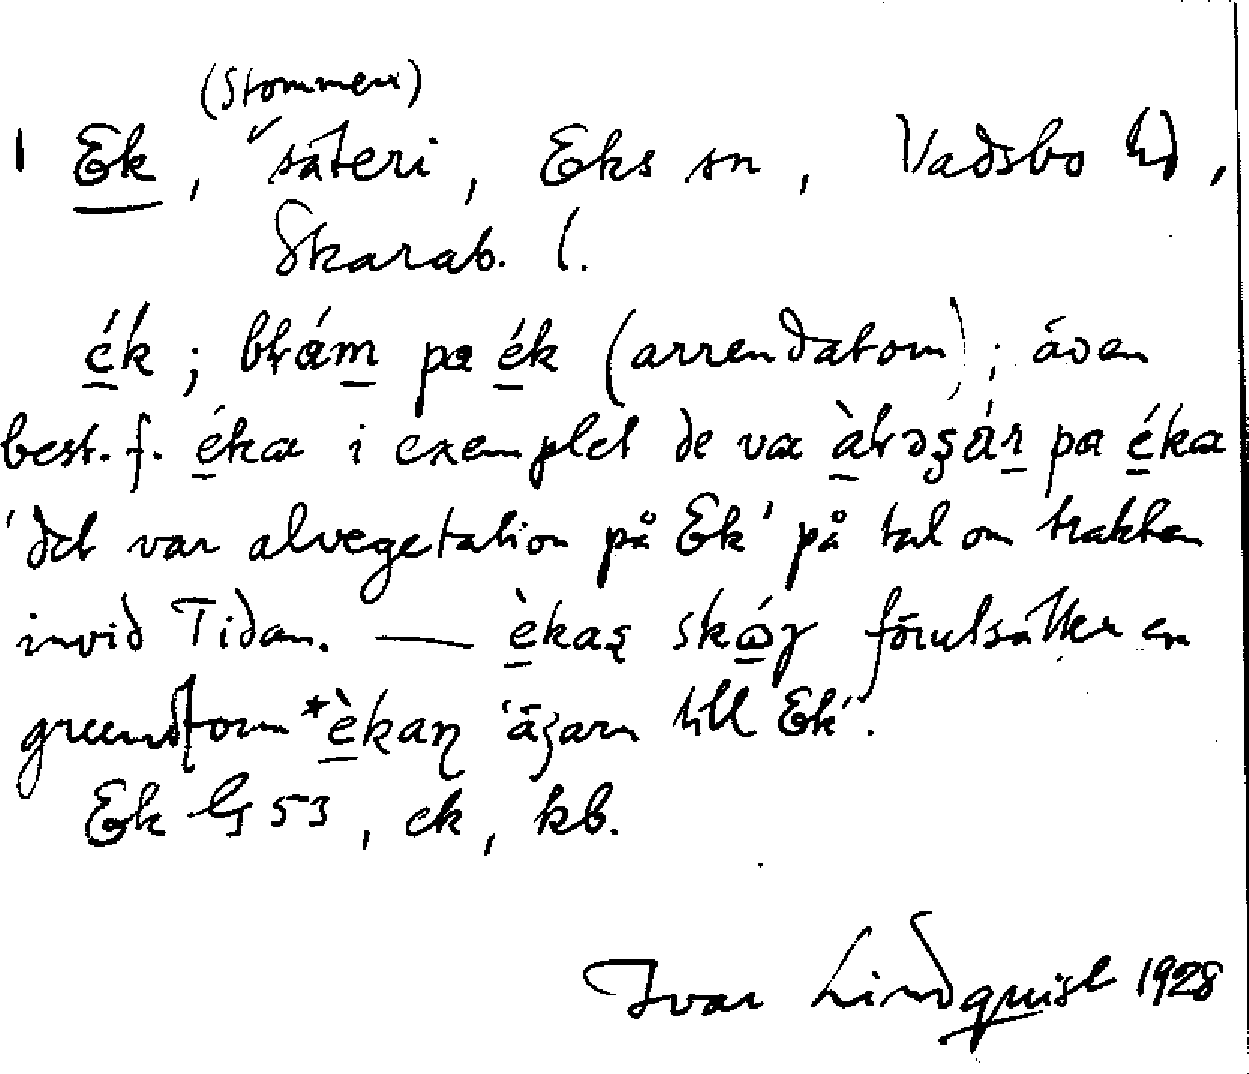 (Stommen)
1 Ek, säteri, Eks sn, Vadsbo hd,
Skarab. l.
ék; brám pa ék (arrendatorn); även
best. f. éka i exemplet de va àlrəgáɹ pa éka
'det var alvegetation på Ek' på tal om trakten
invid Tidan. — èkaʂ skóγ förutsätter en
grundform *èkaɳ 'ägarn till Ek'.
Ek G 53, ek, kb.
Ivar Lindquist 1928